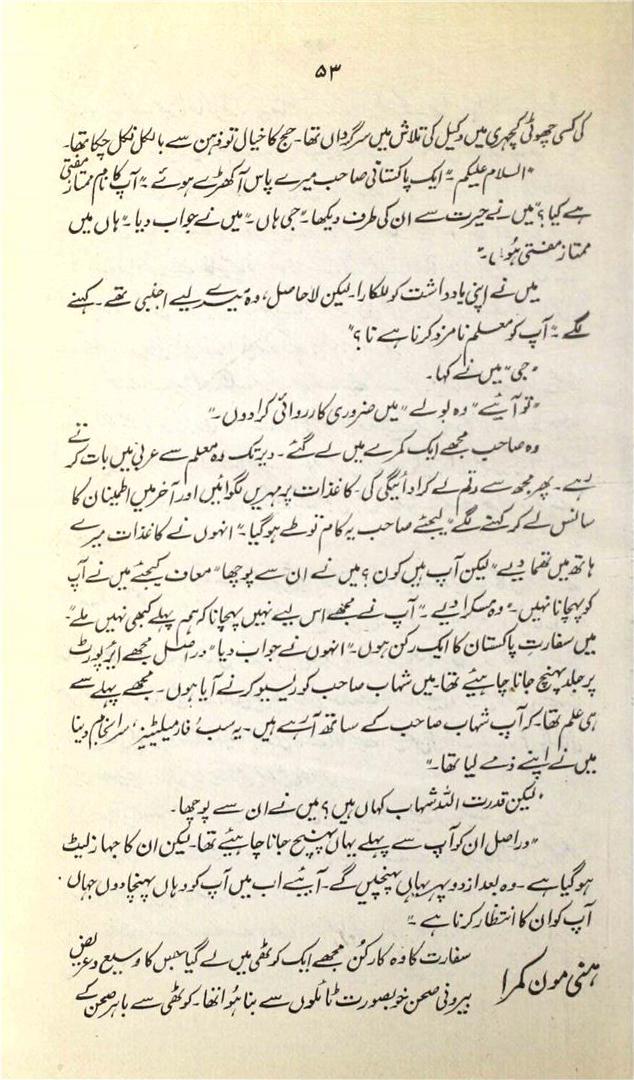 ۵۳
کی کسی چھوٹی کچہری میں وکیل کی تلاش میں سرگرداں تھا۔ حج کا خیال تو ذہن سے بالکل نکل چکا تھا۔
"السلام علیکم۔" ایک پاکستانی صاحب میرے پاس آ کھڑے ہوئے۔ "آپ کا نام ممتاز مفتی
ہے کیا؟" میں نے حیرت سے ان کی طرف دیکھا۔ "جی ہاں۔" میں نے جواب دیا۔ "ہاں میں
ممتاز مفتی ہوں۔"
میں نے اپنی یادداشت کو للکارا۔ لیکن لاحاصل، وہ میرے لیے اجنبی تھے۔ کہنے
لگے۔ "آپ کو معلم نامزد کرنا ہے نا؟"
"جی" میں نے کہا۔
"تو آئیے" وہ بولے "میں ضروری کارروائی کرا دوں۔"
وہ صاحب مجھے ایک کمرے میں لے گئے۔ دیر تک وہ معلم سے عربی میں بات کرتے
رہے۔ پھر مجھ سے رقم لے کر ادائیگی کی۔ کاغذات پر مہریں لگوائیں اور آخر میں اطمینان کا
سانس لے کر کہنے لگے "لیجئے صاحب یہ کام تو طے ہوگیا۔" انہوں نے کاغذات میرے
ہاتھ میں تھما دیے "لیکن آپ ہیں کون؟ میں نے ان سے پوچھا "معاف کیجئے میں نے آپ
کو پہچانا نہیں۔" وہ مسکرا دیے۔ "آپ نے مجھے اس لیے نہیں پہچانا کہ ہم پہلے کبھی نہیں ملے۔"
میں سفارت پاکستان کا ایک رکن ہوں۔" انہوں نے جواب دیا "دراصل مجھے ایئرپورٹ
پر جلد پہنچ جانا چاہیئے تھا۔ میں شہاب صاحب کو ریسیو کرنے آیا ہوں۔ مجھے پہلے سے
ہی علم تھا۔ کہ آپ شہاب صاحب کے ساتھ آرہے ہیں۔ یہ سب 'فارمیلٹیز' سرانجام دینا
میں نے اپنے ذمے لیا تھا۔"
"لیکن قدرت اللہ شہاب کہاں ہیں؟ میں نے ان سے پوچھا۔
"دراصل ان کو آپ سے پہلے یہاں پہنچ جانا چاہیئے تھا۔ لیکن ان کا جہاز لیٹ
ہوگیا ہے۔ وہ بعد از دوپہر یہاں پہنچیں گے۔ آیئے اب میں آپ کو وہاں پہنچا دوں جہاں
آپ کو ان کا انتظار کرنا ہے۔"
ہنی مون کمرا
سفارت کا وہ کارکن مجھے ایک کوٹھی میں لے گیا جس کا وسیع و عریض
بیرونی صحن خوبصورت ٹائلوں سے بنا ہوا تھا۔ کوٹھی سے باہر صحن کے